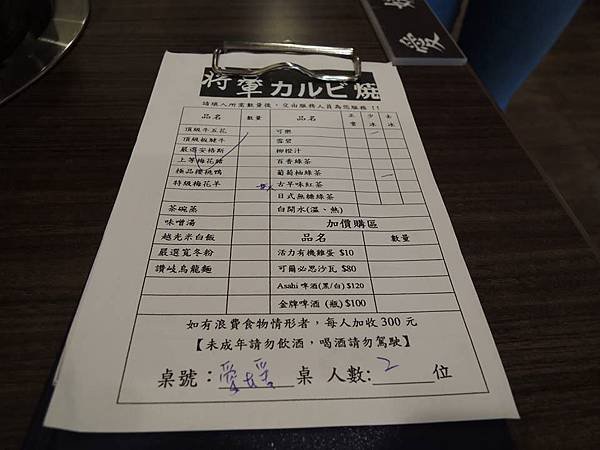 愛
将軍カルビ焼
請填入所需數量後，交由服務人員為您服務!!
品名 數量 品名 正常 少冰 去冰
頂級牛五花 可樂
頂級板腱牛 雪碧
嚴選安格斯 柳橙汁
上等梅花豬 百香綠茶
極品櫻桃鴨 葡萄柚綠茶
特級梅花羊 古早味紅茶
日式無糖綠茶
茶碗蒸 白開水(溫、熱)
味噌湯 加價購區
越光米白飯 品名 數量
嚴選寬冬粉 活力有機雞蛋 $10
讚岐烏龍麵 可爾必思沙瓦 $80
Asahi 啤酒(黑/白) $120
金牌啤酒 (瓶) $100
如有浪費食物情形者，每人加收 300 元
【未成年請勿飲酒，喝酒請勿駕駛】
桌號： 桌 人數: 2 位